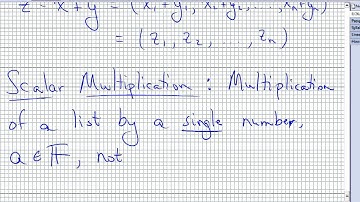 z = x + y = (x₁+y₁, x₂+y₂, ..., xₙ+yₙ)
= (z₁, z₂, ..., zₙ)
Scalar Multiplication : Multiplication
of a list by a single number,
a ∈ 𝔽, not